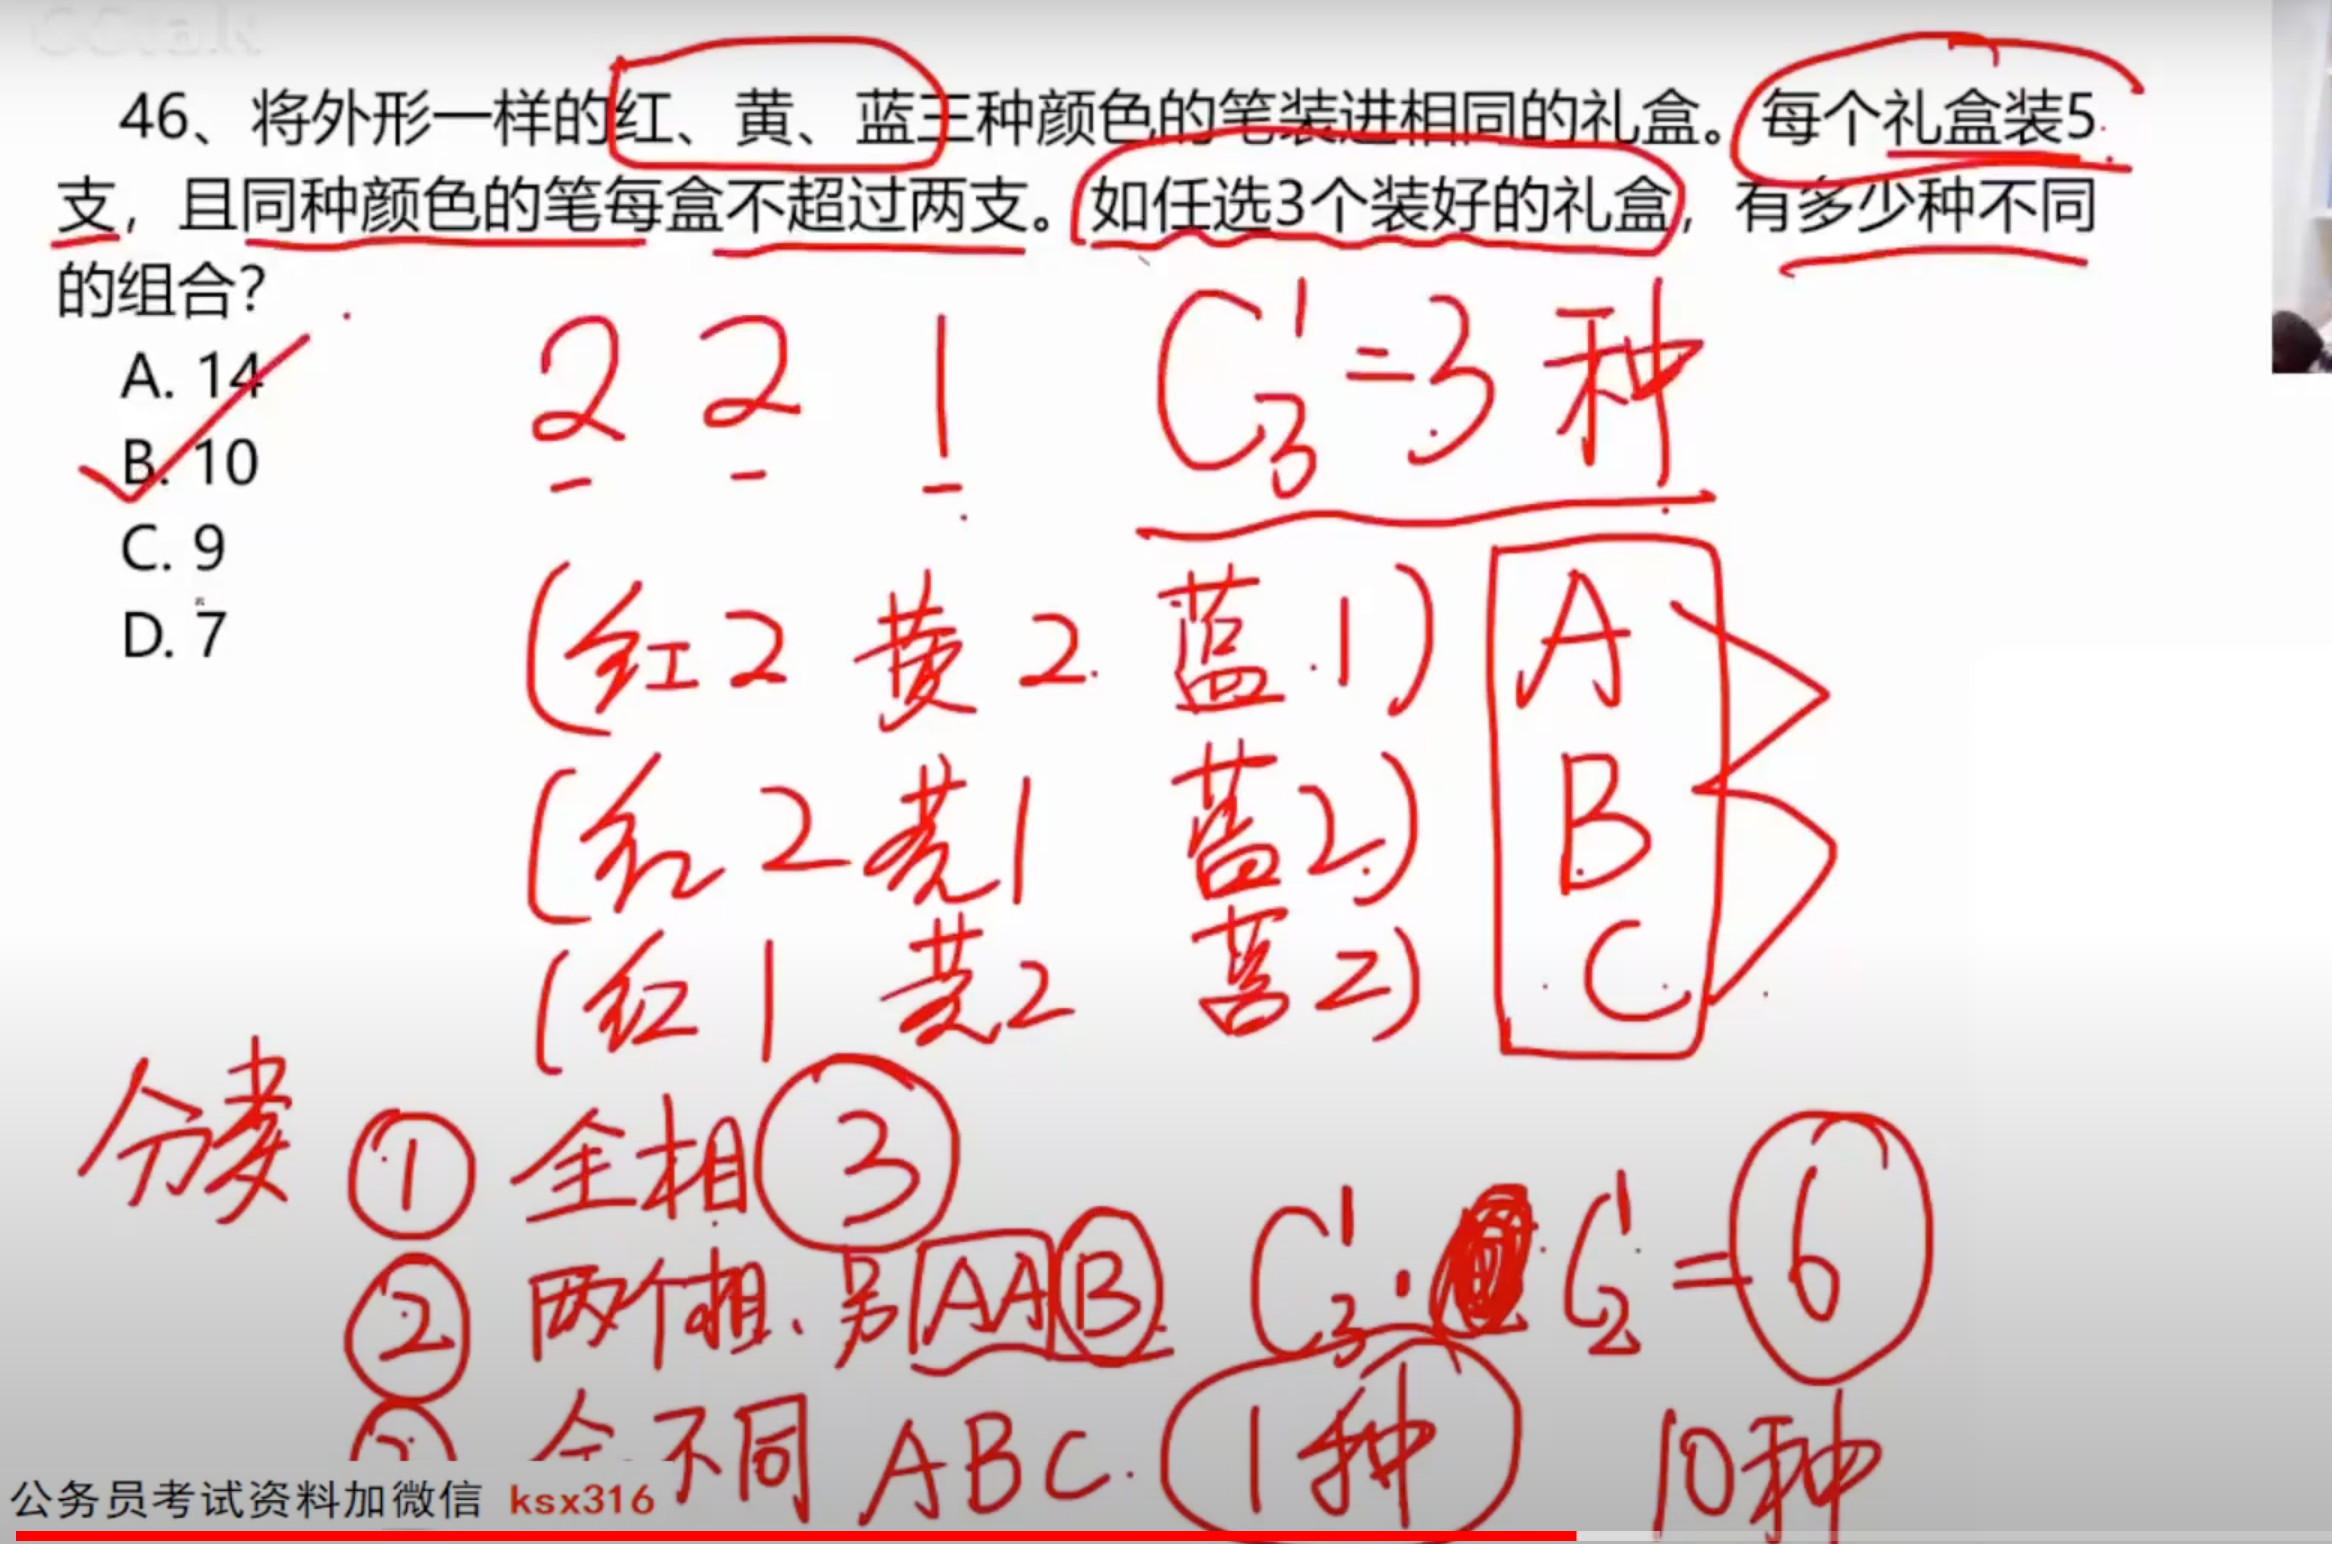 CCtalk
46、将外形一样的红、黄、蓝三种颜色的笔装进相同的礼盒。每个礼盒装5
支，且同种颜色的笔每盒不超过两支。如任选3个装好的礼盒，有多少种不同
的组合？
A. 14
B. 10
C. 9
D. 7
2 2 1 C₃¹=3 种
(红2 黄2 蓝1) A
(红2 黄1 蓝2) B
(红1 黄2 蓝2) C
分类 ① 全相 ③
② 两个相、另 AA B C₃¹· C₂¹ = 6
全不同 ABC. 1种 10种
公务员考试资料加微信 ksx316